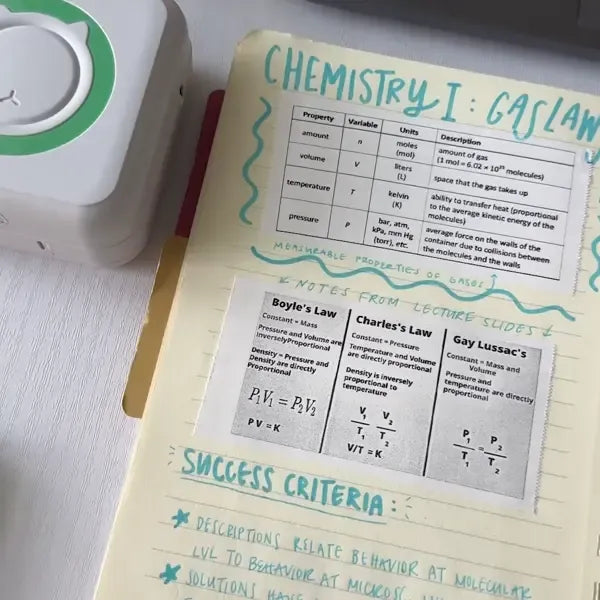 CHEMISTRY I : GAS LAW
Property Variable Units Description
amount n moles (mol) amount of gas (1 mol = 6.02 × 10²³ molecules)
volume V liters (L) space that the gas takes up
temperature T kelvin (K) ability to transfer heat (proportional to the average kinetic energy of the molecules)
pressure P bar, atm, kPa, mm Hg (torr), etc. average force on the walls of the container due to collisions between the molecules and the walls
MEASURABLE PROPERTIES OF GASES
NOTES FROM LECTURE SLIDES
Boyle's Law
Constant = Mass
Pressure and Volume are
InverselyProportional
Density = Pressure and
Density are directly
Proportional
P₁V₁ = P₂V₂
PV = K
Charles's Law
Constant = Pressure
Temperature and Volume
are directly proportional
Density is inversely
proportional to
temperature
V₁ V₂
T₁ T₂
V/T = K
Gay Lussac's
Constant = Mass and
Volume
Pressure and
temperature are directly
proportional
P₁ = P₂
T₁ T₂
SUCCESS CRITERIA :
DESCRIPTIONS RELATE BEHAVIOR AT MOLECULAR
LVL TO BEHAVIOR AT
SOLUTIONS